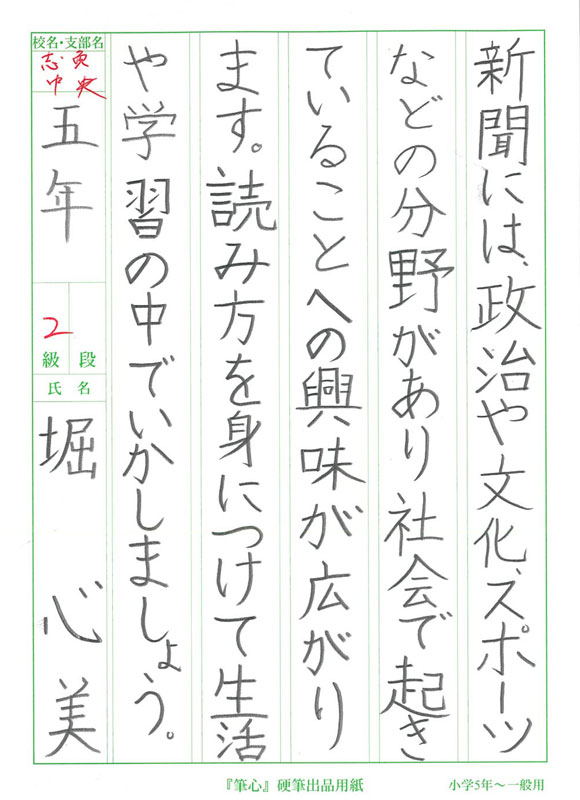 新聞には、政治や文化、スポーツ
などの分野があり社会で起き
ていることへの興味が広がり
ます。読み方を身につけて生活
や学習の中でいかしましょう。
校名・支部名
中央
五年
2
級 段
氏名
堀 心美
『筆心』硬筆出品用紙
小学5年〜一般用